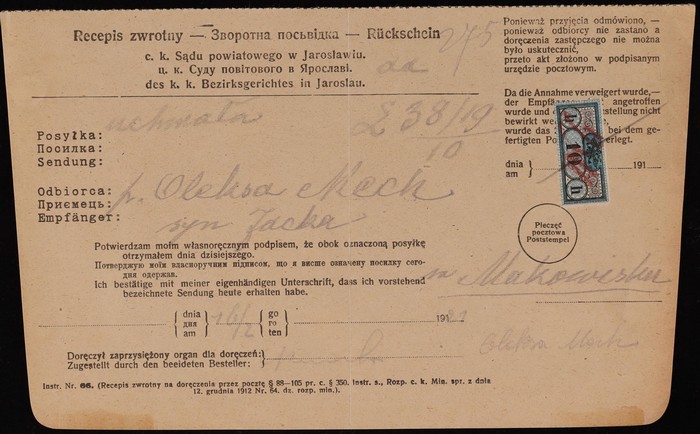 Recepis zwrotny — Зворотна посьвідка — Rückschein
c. k. Sądu powiatowego w Jarosławiu.
ц. к. Суду повітового в Ярославі.
des k. k. Bezirksgerichtes in Jaroslau.
Ponieważ przyjęcia odmówiono, —
ponieważ odbiorcy nie zastano a
doręczenia zastępczego nie można
było uskutecznić,
przeto akt złożono w podpisanym
urzędzie pocztowym.
Da die Annahme verweigert wurde, —
der Empfänger angetroffen
wurde und stellung nicht
bewirkt
wurde das bei dem ge-
fertigten erlegt.
dnia
am 191
10
h h
uchwała
E 38/19
10
Posyłka:
Посилка:
Sendung:
Odbiorca:
Приємець:
Empfänger:
p. Oleksa Mech
syn Jacka
Pieczęć
pocztowa
Poststempel
Potwierdzam moim własnoręcznym podpisem, że obok oznaczoną posyłkę
otrzymałem dnia dzisiejszego.
Потверджую моїм власноручним підписом, що я висше означену посилку сего-
дня одержав.
Ich bestätige mit meiner eigenhändigen Unterschrift, dass ich vorstehend
bezeichnete Sendung heute erhalten habe.
w Makowisku
dnia go
дня го 191
am ten
Oleksa Mech
Doręczył zaprzysiężony organ dla doręczeń:
Zugestellt durch den beeideten Besteller:
Instr. Nr. 66. (Recepis zwrotny na doręczenia przez pocztę § 88—105 pr. c. § 350. instr. s., Rozp. c. k. Min. spr. z dnia
12. grudnia 1912 Nr. 64. dz. rozp. min.).